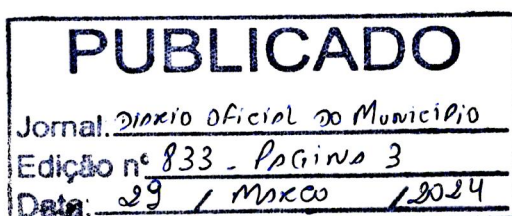 PUBLICADO
Jornal. Diario Oficial do Municipio
Edição nº 833 - Pagina 3
Data: 29 / Marco / 2024